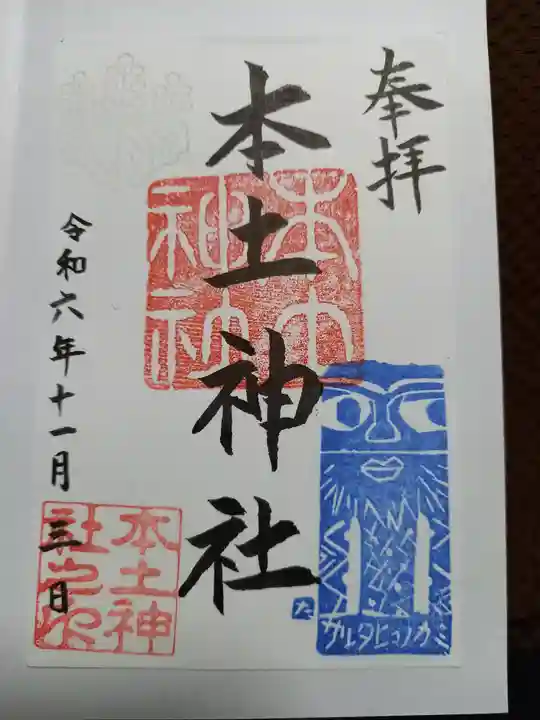 奉拝
本土神社
本土神社
令和六年十一月三日
本土神社之印
サルタヒコノカミ
た